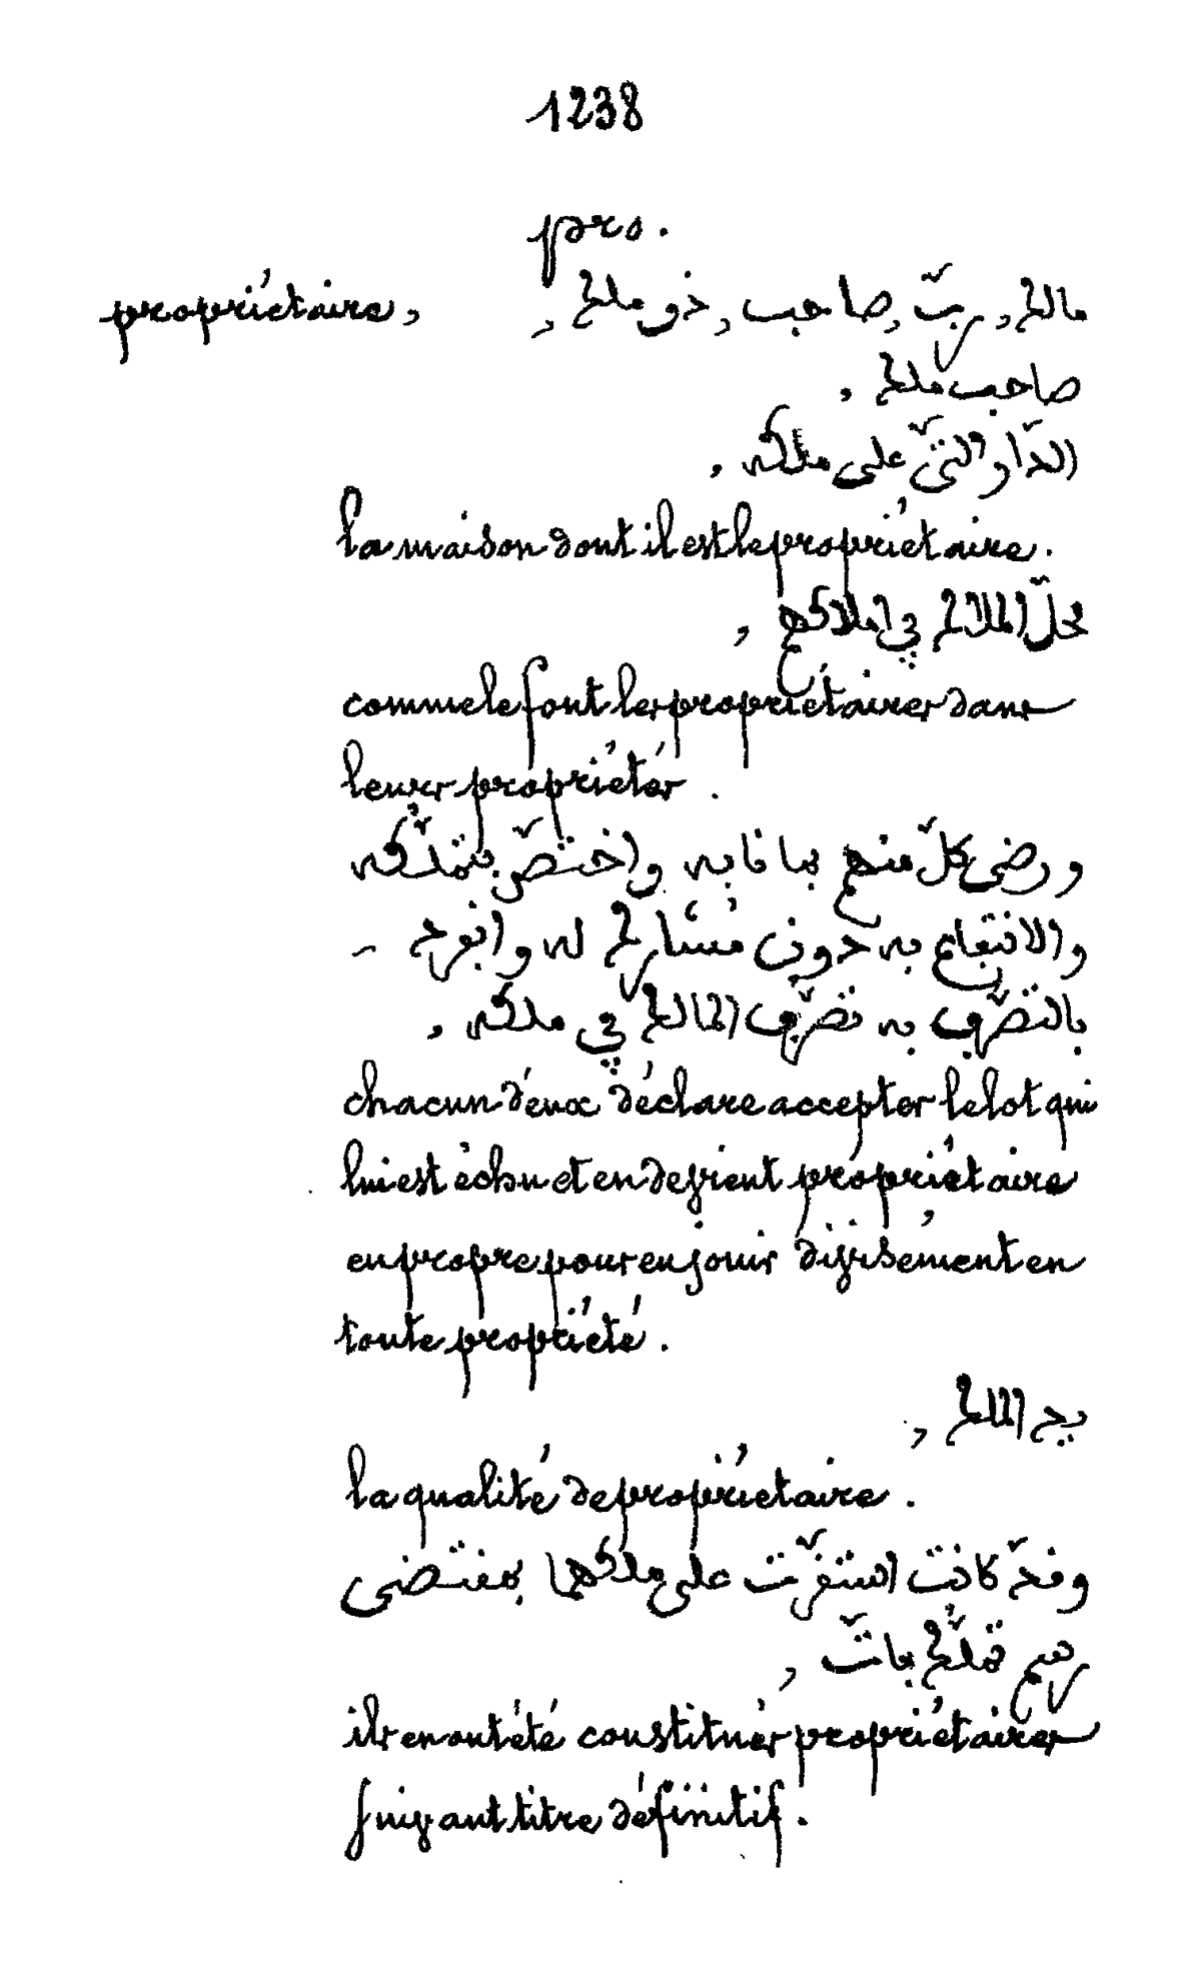 1238
pro.
propriétaire, مالك, ربّ, صاحب, ذو ملك,
صاحب ملك,
الدّار التّى على ملكه,
la maison dont il est le propriétaire.
محلّ الملاك في املاكهم,
comme le font les propriétaires dans
leurs propriétés.
ورضى كلّ منهم بما نابه واختصّ بتملّكه
والانتفاع به دون مُشارك له وانفرد -
بالتصّرّف به تصرّف المالك في ملكه,
chacun d'eux déclare accepter le lot qui
lui est échu et en devient propriétaire
en propre pour en jouir divisément en
toute propriété.
يد الملك,
la qualité de propriétaire.
وقد كانت استقرّت على ملكهما بمقتضى
رسم تملّك باتّ,
ils en ont été constitués propriétaires
suivant titre définitif.